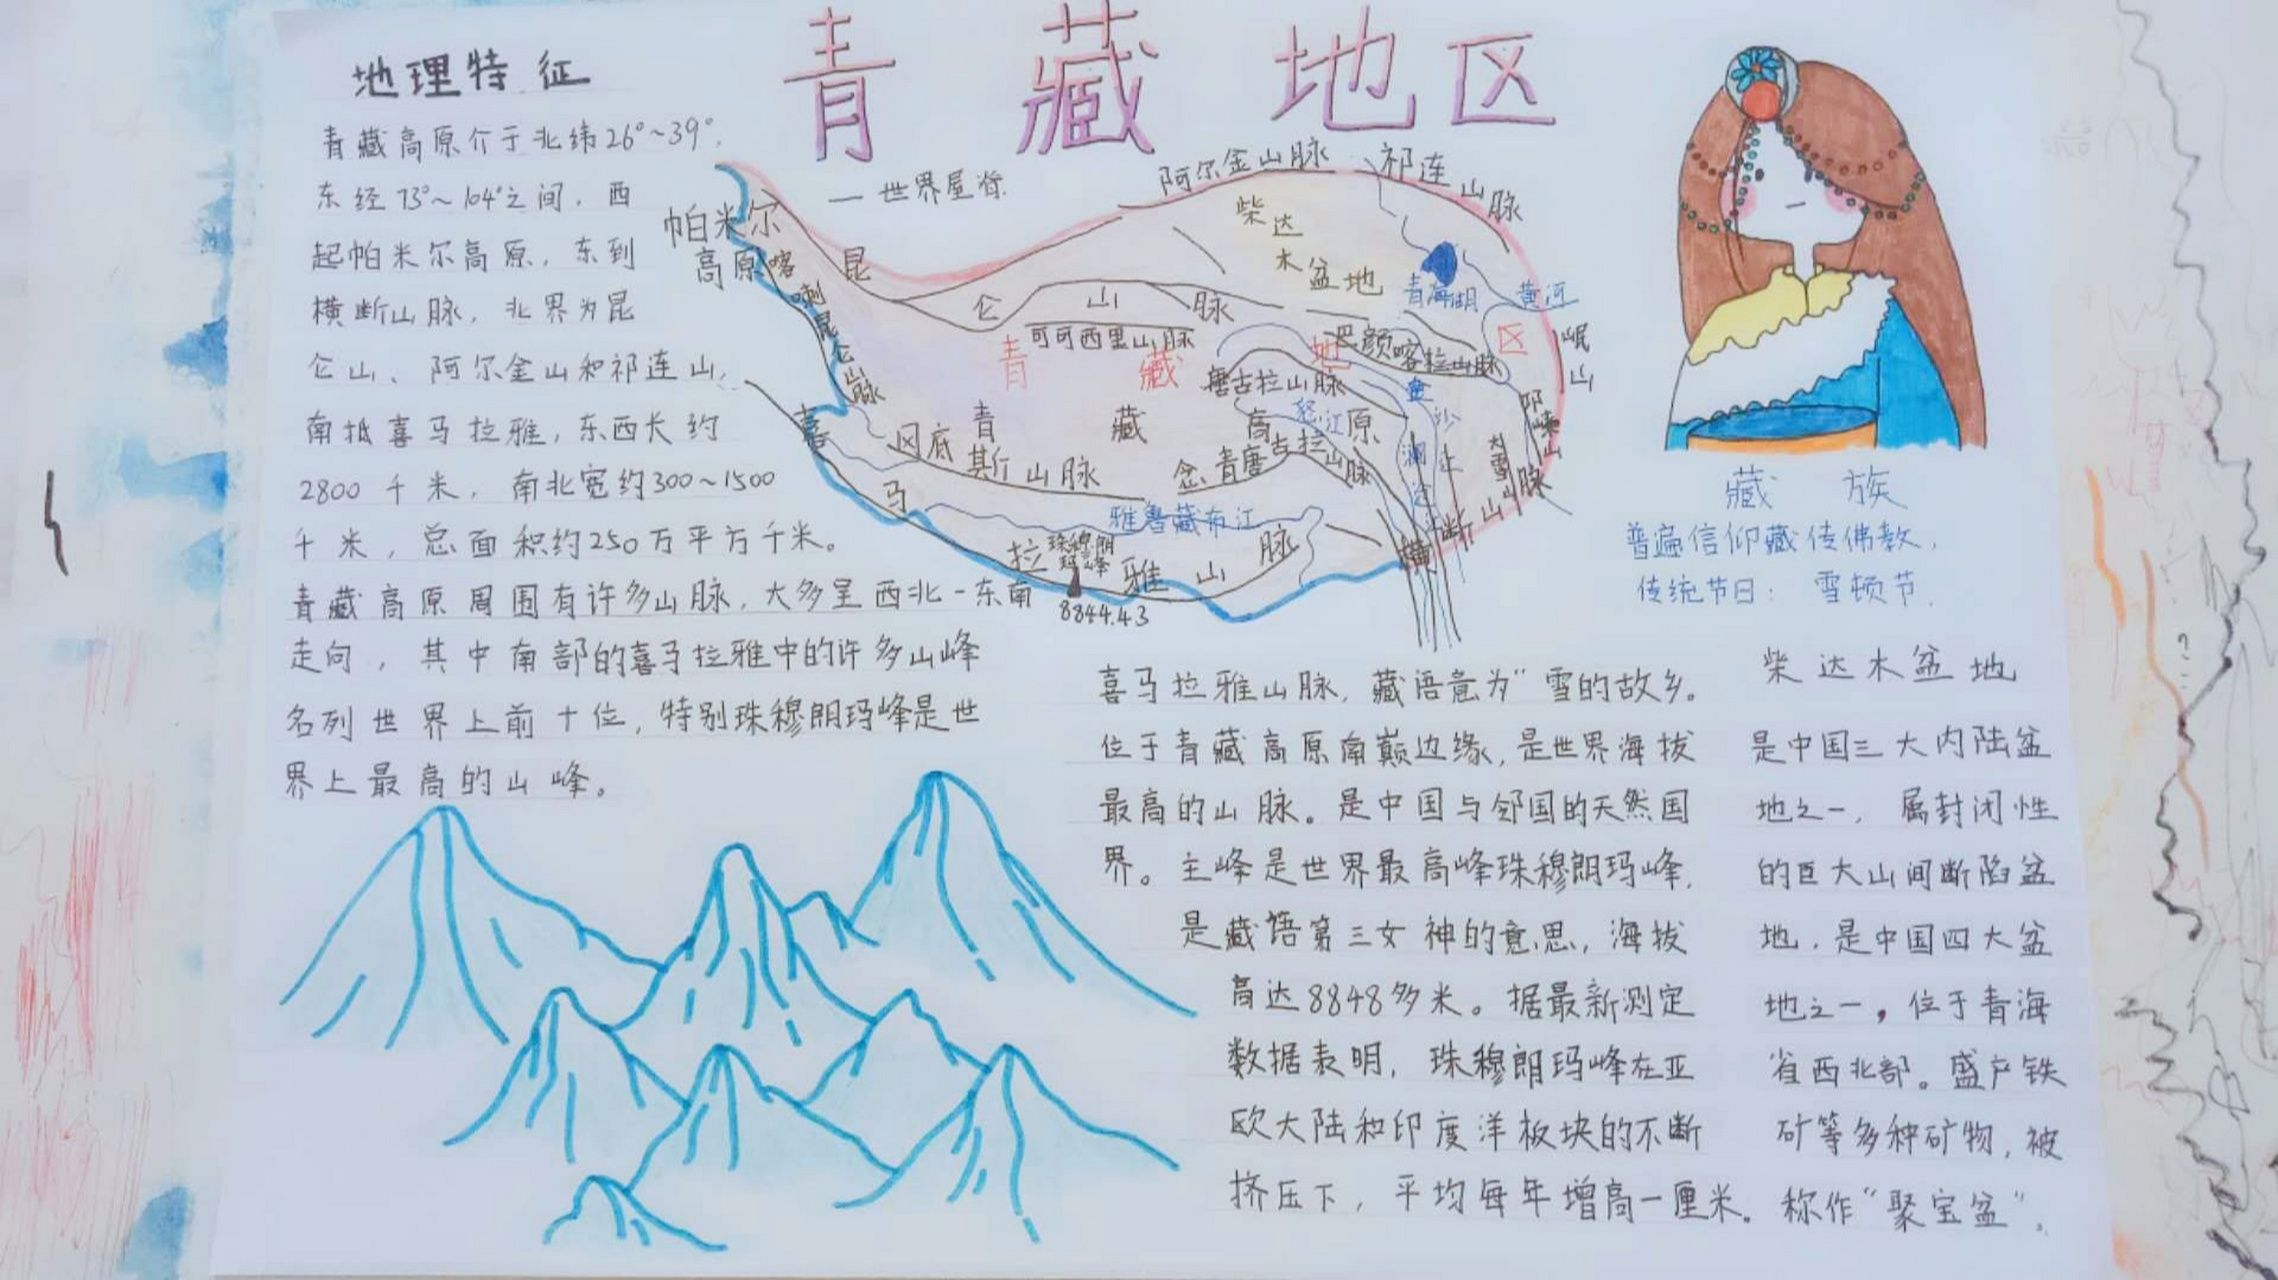 青藏地区
—世界屋脊
地理特征
青藏高原介于北纬26°~39°,
东经73°~104°之间，西
起帕米尔高原，东到
横断山脉，北界为昆
仑山、阿尔金山和祁连山，
南抵喜马拉雅，东西长约
2800千米，南北宽约300~1500
千米，总面积约250万平方千米。
青藏高原周围有许多山脉，大多呈西北-东南
走向，其中南部的喜马拉雅中的许多山峰
名列世界上前十位，特别珠穆朗玛峰是世
界上最高的山峰。
阿尔金山脉
祁连山脉
帕米尔
高原
喀喇昆仑山脉
昆仑山脉
柴达木盆地
青海湖
黄河
可可西里山脉
巴颜喀拉山脉
岷山
青藏地区
唐古拉山脉
怒江
金沙江
澜沧江
邛崃山脉
大雪山
青藏高原
冈底斯山脉
念青唐古拉山脉
雅鲁藏布江
喜马拉雅山脉
珠穆朗
玛峰
8844.43
横断山脉
藏族
普遍信仰藏传佛教，
传统节日：雪顿节．
喜马拉雅山脉，藏语意为“雪的故乡。
位于青藏高原南巅边缘，是世界海拔
最高的山脉。是中国与邻国的天然国
界。主峰是世界最高峰珠穆朗玛峰，
是藏语第三女神的意思，海拔
高达8848多米。据最新测定
数据表明，珠穆朗玛峰在亚
欧大陆和印度洋板块的不断
挤压下，平均每年增高一厘米。
柴达木盆地
是中国三大内陆盆
地之一，属封闭性
的巨大山间断陷盆
地，是中国四大盆
地之一，位于青海
省西北部。盛产铁
矿等多种矿物，被
称作“聚宝盆”。